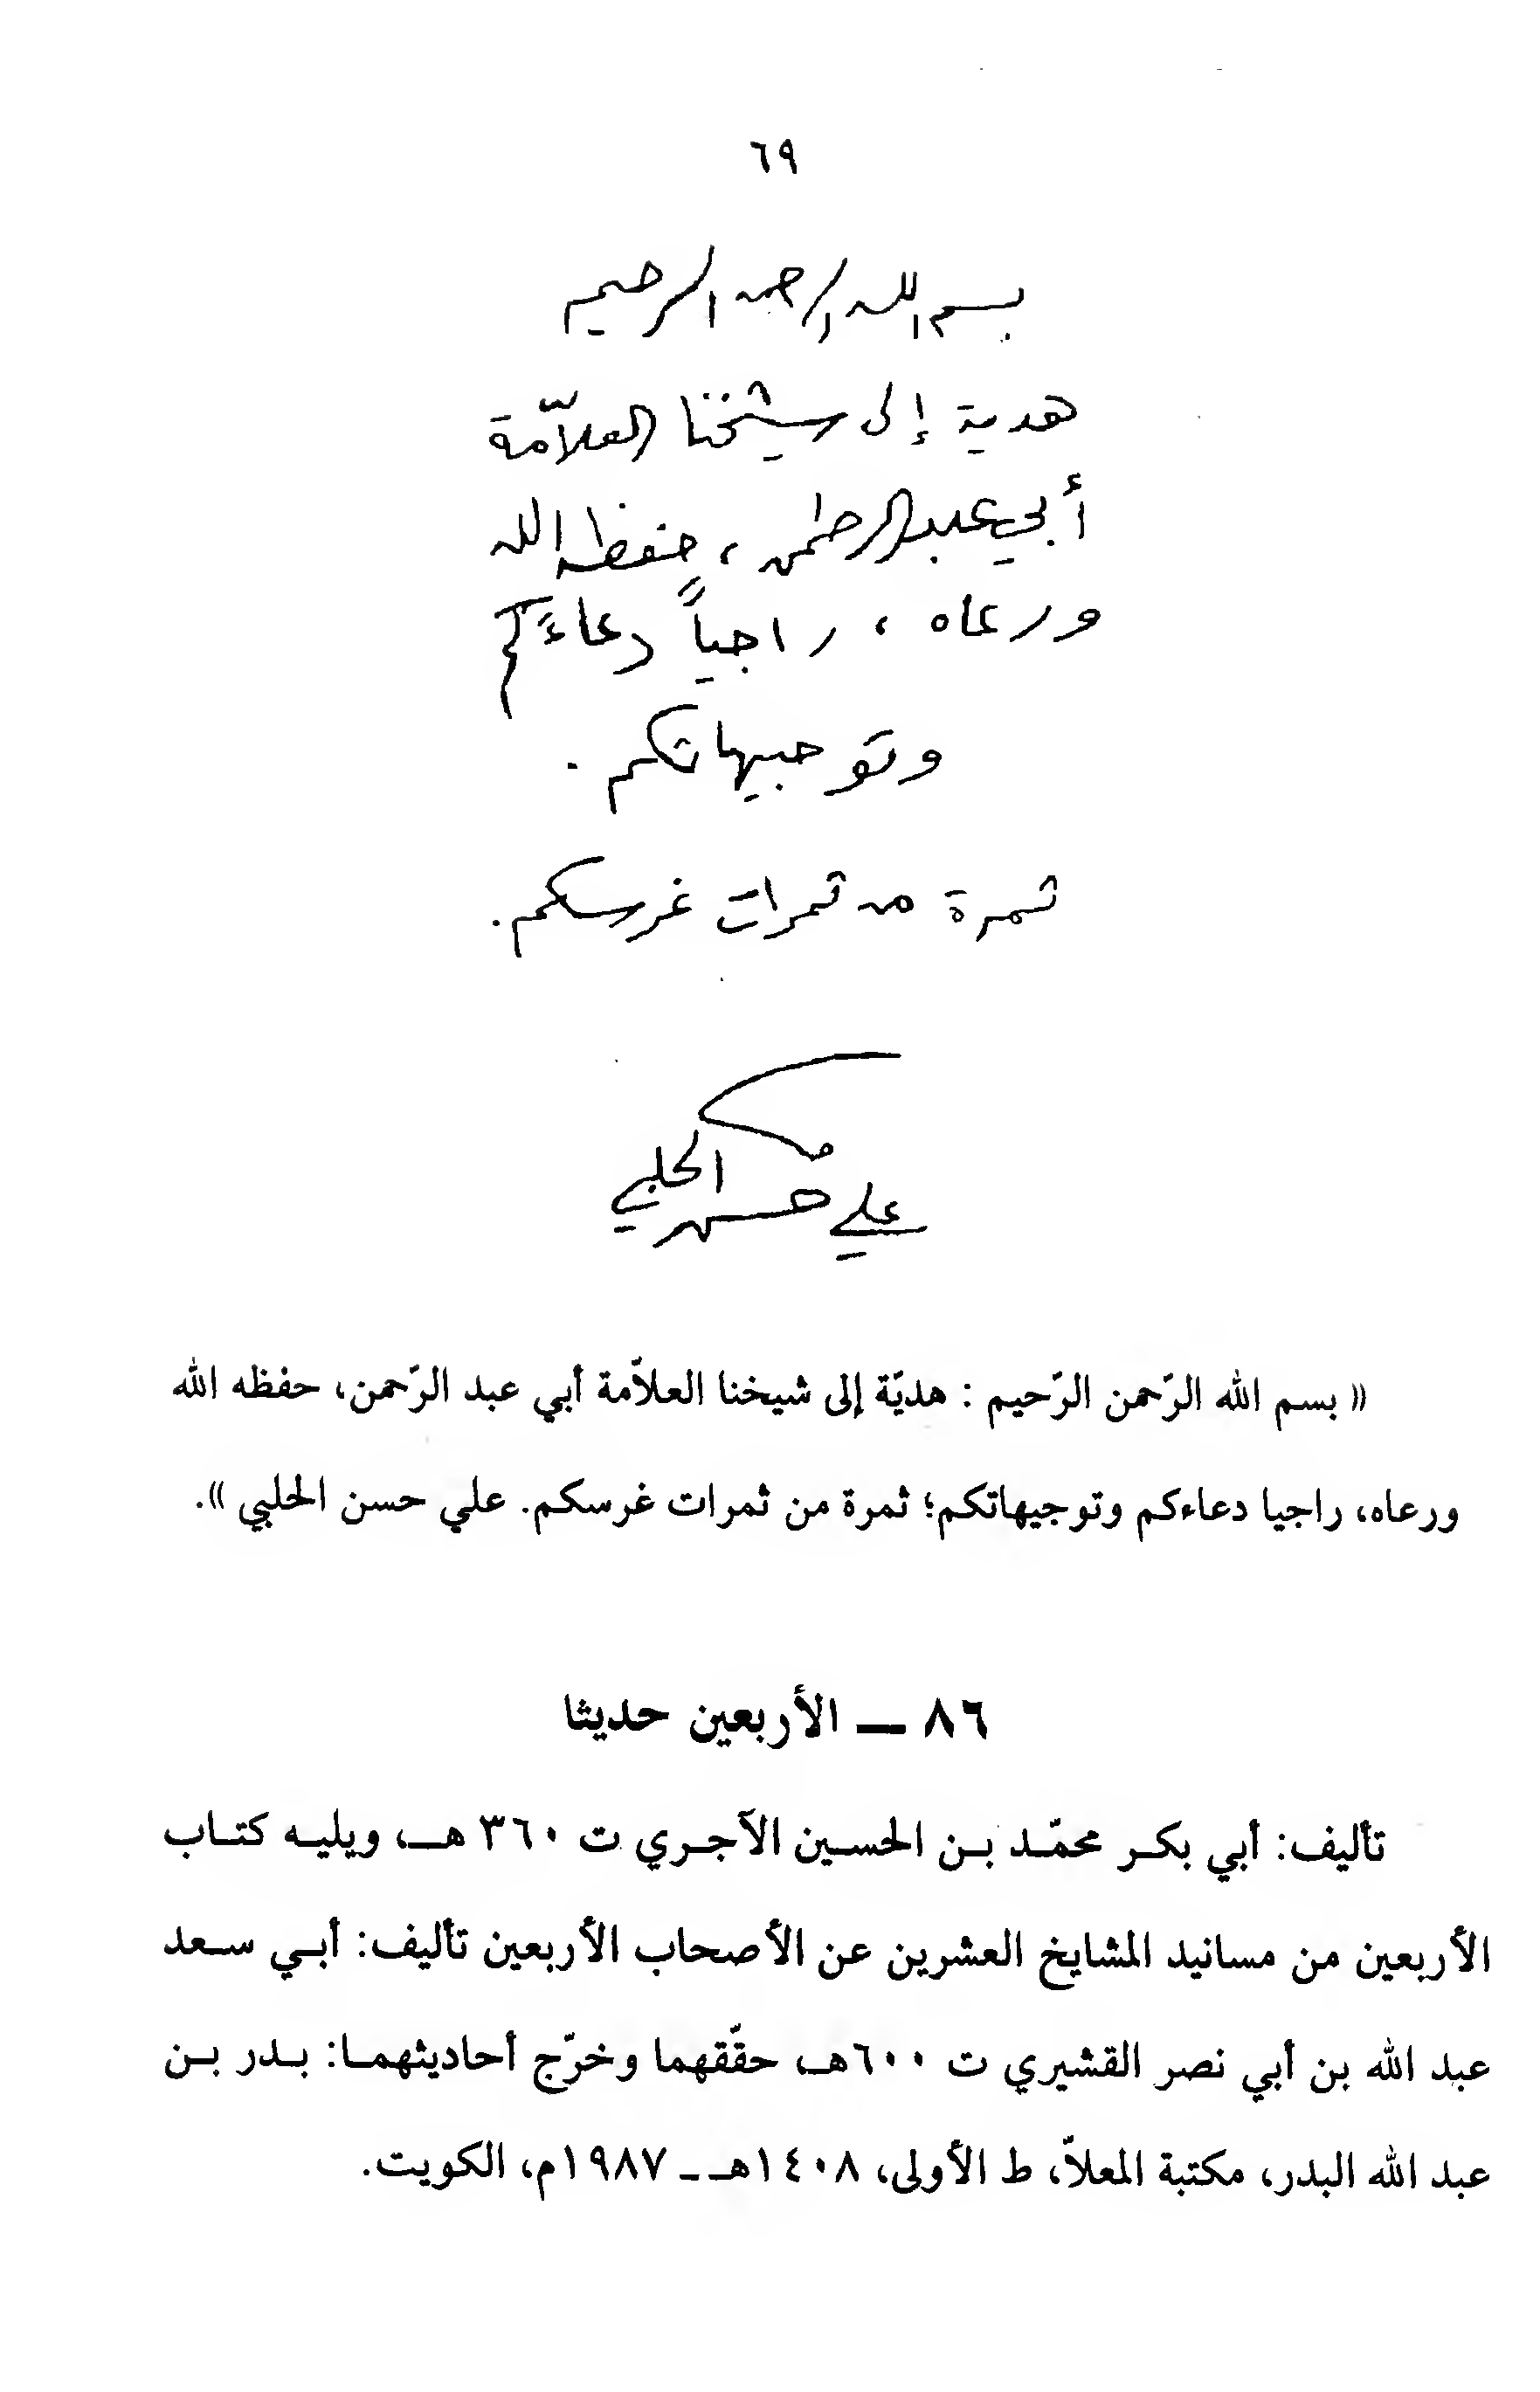 ٦٩
بسم الله الرحمن الرحيم
هدية إلى شيخنا العلاّمة
أبي عبد الرحمن ، حفظه الله
ورعاه ، راجياً دعاءَكم
وتوجيهاتكم .
ثمرة من ثمرات غرسكم .
علي حسن الحلبي
(( بسم الله الرّحمن الرّحيم : هديّة إلى شيخنا العلاّمة أبي عبد الرّحمن، حفظه الله
ورعاه، راجيا دعاءكم وتوجيهاتكم؛ ثمرة من ثمرات غرسكم. علي حسن الحلبي )).
٨٦ — الأربعين حديثا
تأليف: أبي بكر محمّد بن الحسين الآجري ت ٣٦٠ هـ، ويليه كتاب
الأربعين من مسانيد المشايخ العشرين عن الأصحاب الأربعين تأليف: أبي سعد
عبد الله بن أبي نصر القشيري ت ٦٠٠هـ حقّقهما وخرّج أحاديثهما: بدر بن
عبد الله البدر، مكتبة المعلاّ، ط الأولى، ١٤٠٨هـ - ١٩٨٧م، الكويت.